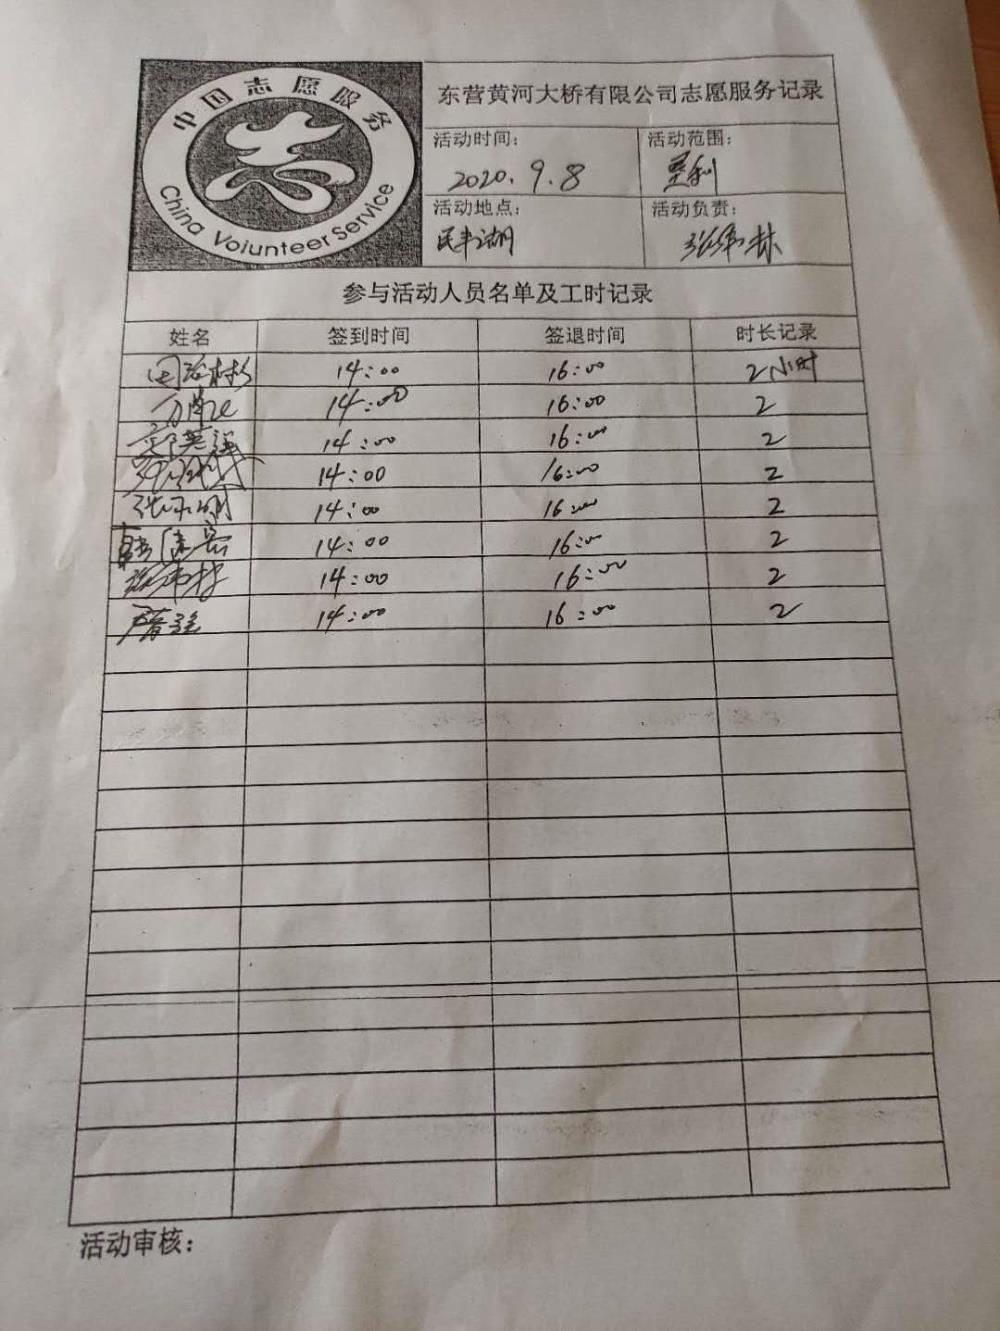 中国志愿服务
China Voiunteer Service
东营黄河大桥有限公司志愿服务记录
活动时间： 活动范围：
2020.9.8 垦利
活动地点： 活动负责：
民丰湖 张伟林
参与活动人员名单及工时记录
姓名 签到时间 签退时间 时长记录
14:00 16:00 2小时
14:00 16:00 2
14:00 16:00 2
14:00 16:00 2
14:00 16:00 2
14:00 16:00 2
张伟林 14:00 16:00 2
14:00 16:00 2
活动审核：